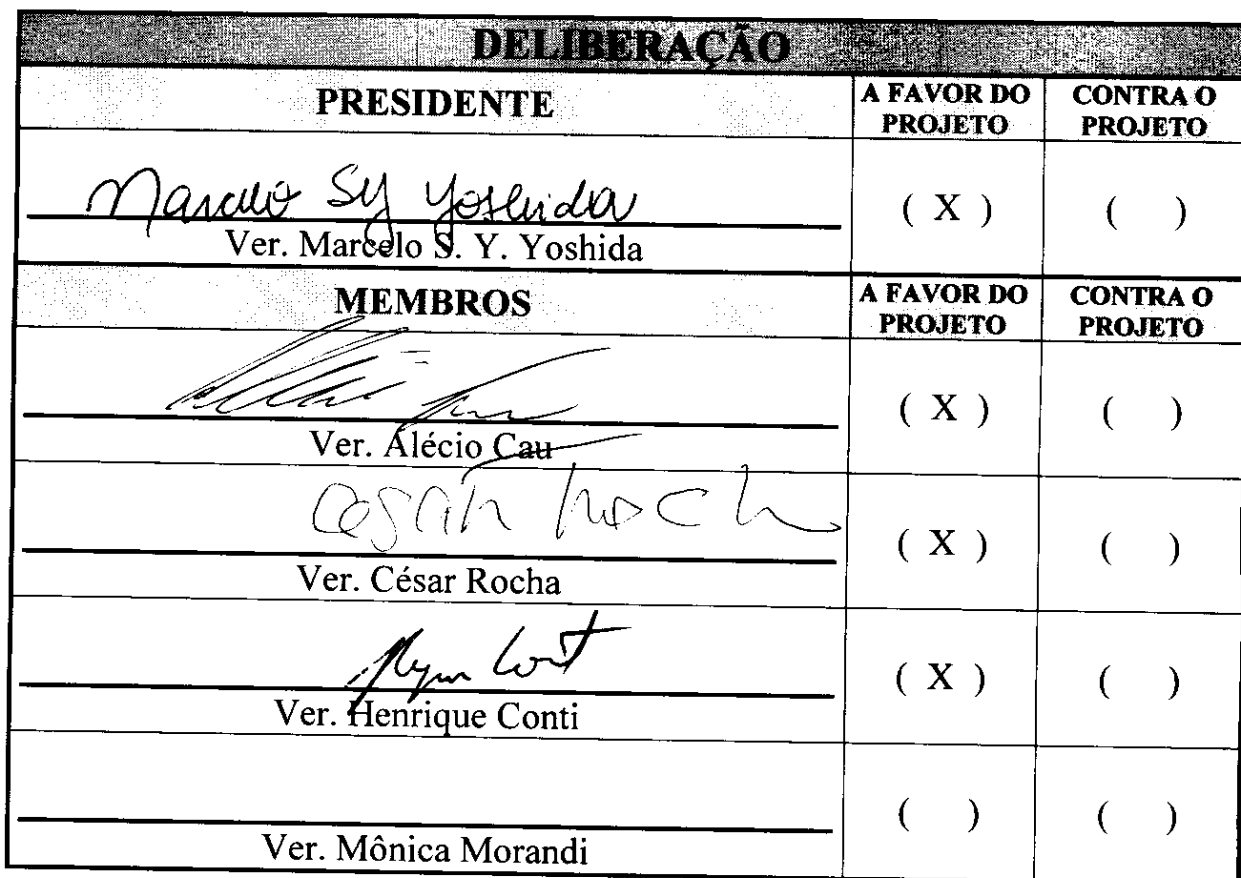 DELIBERAÇÃO
PRESIDENTE
A FAVOR DO PROJETO
CONTRA O PROJETO
Marcelo SY Yoshida
Ver. Marcelo S. Y. Yoshida
( X )
( )
MEMBROS
A FAVOR DO PROJETO
CONTRA O PROJETO
Ver. Alécio Cau
( X )
( )
Cesar Rocha
Ver. César Rocha
( X )
( )
Ver. Henrique Conti
( X )
( )
Ver. Mônica Morandi
( )
( )